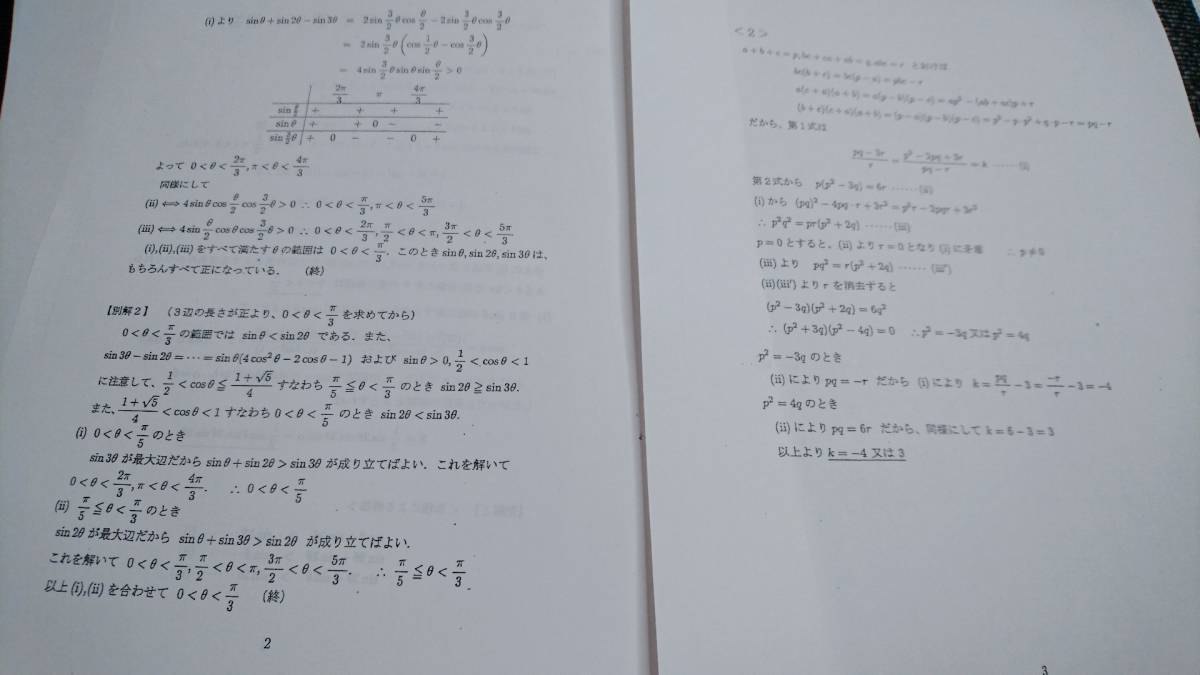 (i)より sinθ+sin2θ−sin3θ = 2sin 3/2 θ cos θ/2 − 2sin 3/2 θ cos 3/2 θ
= 2sin 3/2 θ (cos 1/2 θ − cos 3/2 θ)
= 4sin 3/2 θ sinθ sin θ/2 > 0
2π/3 π 4π/3
sin θ/2 + + + +
sinθ + + 0 − −
sin 3/2 θ + 0 − − 0 +
よって 0<θ<2π/3, π<θ<4π/3
同様にして
(ii)⟺4sinθcos θ/2 cos 3/2 θ>0 ∴ 0<θ<π/3, π<θ<5π/3
(iii)⟺4sin θ/2 cosθcos 3/2 θ>0 ∴ 0<θ<2π/3, π/2<θ<π, 3π/2<θ<5π/3
(i),(ii),(iii)をすべて満たすθの範囲は 0<θ<π/3. このとき sinθ, sin2θ, sin3θは、
もちろんすべて正になっている. (終)
【別解2】 (3辺の長さが正より、0<θ<π/3 を求めてから)
0<θ<π/3 の範囲では sinθ<sin2θ である. また、
sin3θ−sin2θ=⋯=sinθ(4cos²θ−2cosθ−1) および sinθ>0, 1/2<cosθ<1
に注意して、1/2<cosθ≦(1+√5)/4 すなわち π/5≦θ<π/3 のとき sin2θ≧sin3θ.
また、(1+√5)/4<cosθ<1 すなわち 0<θ<π/5 のとき sin2θ<sin3θ.
(i) 0<θ<π/5 のとき
sin3θが最大辺だから sinθ+sin2θ>sin3θ が成り立てばよい. これを解いて
0<θ<2π/3, π<θ<4π/3. ∴ 0<θ<π/5
(ii) π/5≦θ<π/3 のとき
sin2θが最大辺だから sinθ+sin3θ>sin2θ が成り立てばよい.
これを解いて 0<θ<π/3, π/2<θ<π, 3π/2<θ<5π/3. ∴ π/5≦θ<π/3.
以上(i),(ii)を合わせて 0<θ<π/3 (終)
2
<2>
a+b+c=p, bc+ca+ab=q, abc=r とおけば
bc(b+c)=bc(p−a)=pbc−r
(b+c)(c+a)(a+b)=(p−a)(p−b)(p−c)=p³−p·p²+q·p−r=pq−r
だから、第1式は
(pq−3r)/r = (p³−3pq+3r)/(pq−r) = k ……(i)
第2式から p(p²−3q)=6r ……(ii)
(i)から (pq)²−4pq·r+3r²=p³r−2pqr+3r²
∴ p²q²=pr(p²+2q) ……(iii)
p=0とすると、(ii)よりr=0となり(i)に矛盾 ∴ p≠0
(iii)より pq²=r(p²+2q) ……(iii′)
(ii)(iii′)よりrを消去すると
(p²−3q)(p²+2q)=6q²
∴ (p²+3q)(p²−4q)=0 ∴p²=−3q 又は p²=4q
p²=−3qのとき
(ii)によりpq=−r だから (i)により k=pq/r−3=−r/r−3=−4
p²=4qのとき
(ii)によりpq=6r だから、同様にして k=6−3=3
以上より k=−4 又は 3
3